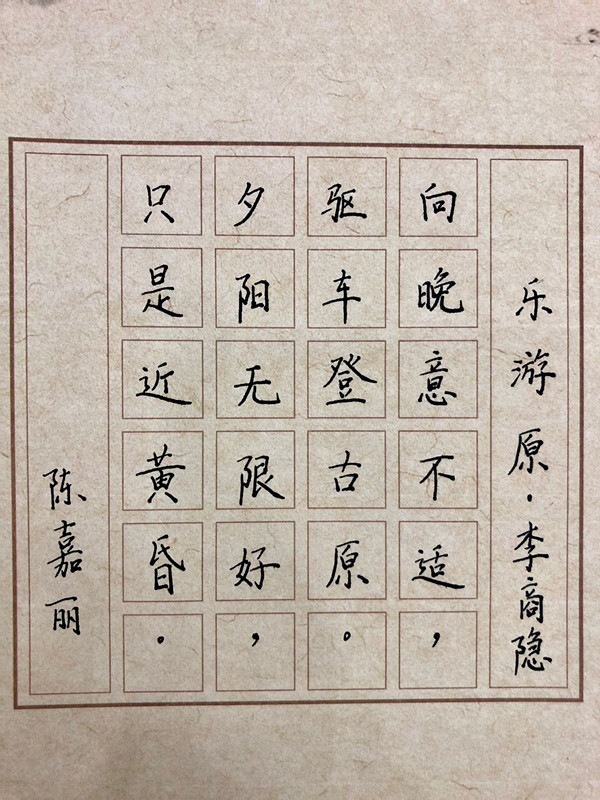 乐游原·李商隐
向晚意不适，
驱车登古原。
夕阳无限好，
只是近黄昏。
陈嘉丽